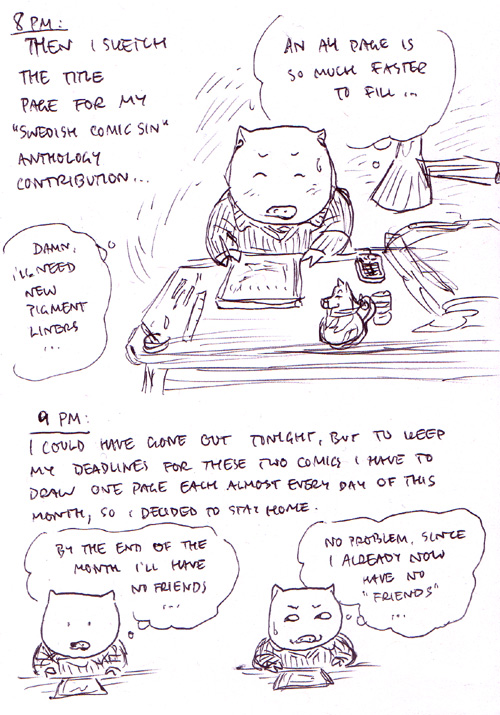 8 PM:
THEN I SKETCH
THE TITLE
PAGE FOR MY
"SWEDISH COMIC SIN"
ANTHOLOGY
CONTRIBUTION...
AN A4 PAGE IS
SO MUCH FASTER
TO FILL...
DAMN,
I'LL NEED
NEW
PIGMENT
LINERS
...
9 PM:
I COULD HAVE GONE OUT TONIGHT, BUT TO KEEP
MY DEADLINES FOR THESE TWO COMICS I HAVE TO
DRAW ONE PAGE EACH ALMOST EVERY DAY OF THIS
MONTH, SO I DECIDED TO STAY HOME.
BY THE END OF THE
MONTH I'LL HAVE
NO FRIENDS
...
NO PROBLEM, SINCE
I ALREADY NOW
HAVE NO
"FRIENDS"
...